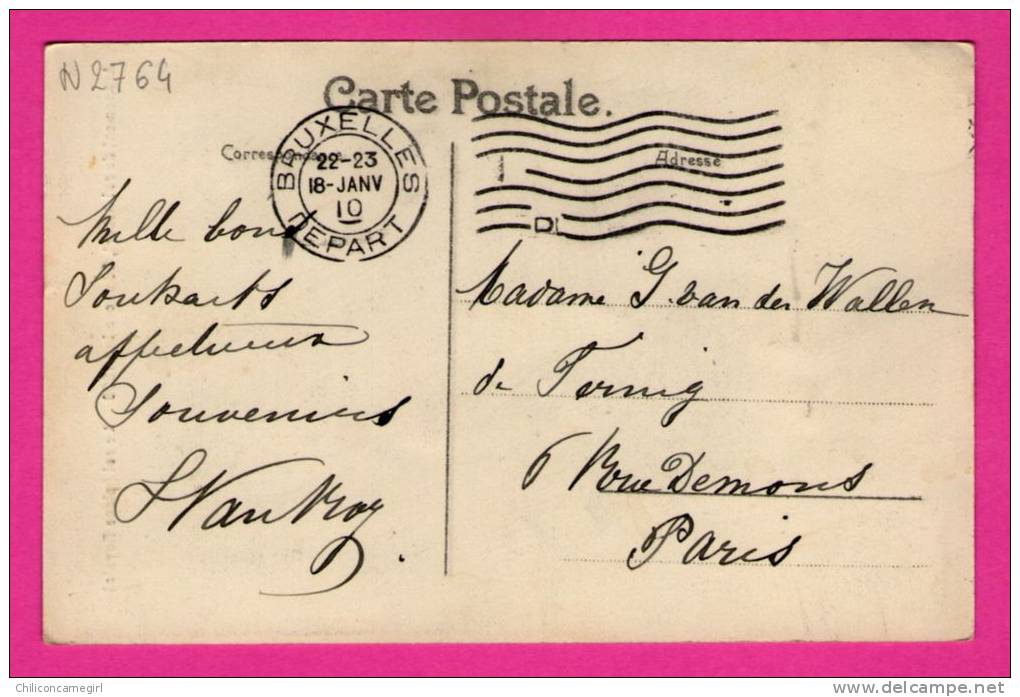 N2764
Carte Postale.
Correspondance
Adresse
BRUXELLES
22-23
18-JANV
10
DEPART
Mille bons
Souhaits
affectueux
Souvenirs
Madame G. van der Wallen
de
6 Rue Demours
Paris
Chiliconcamegirl
www.delcampe.net